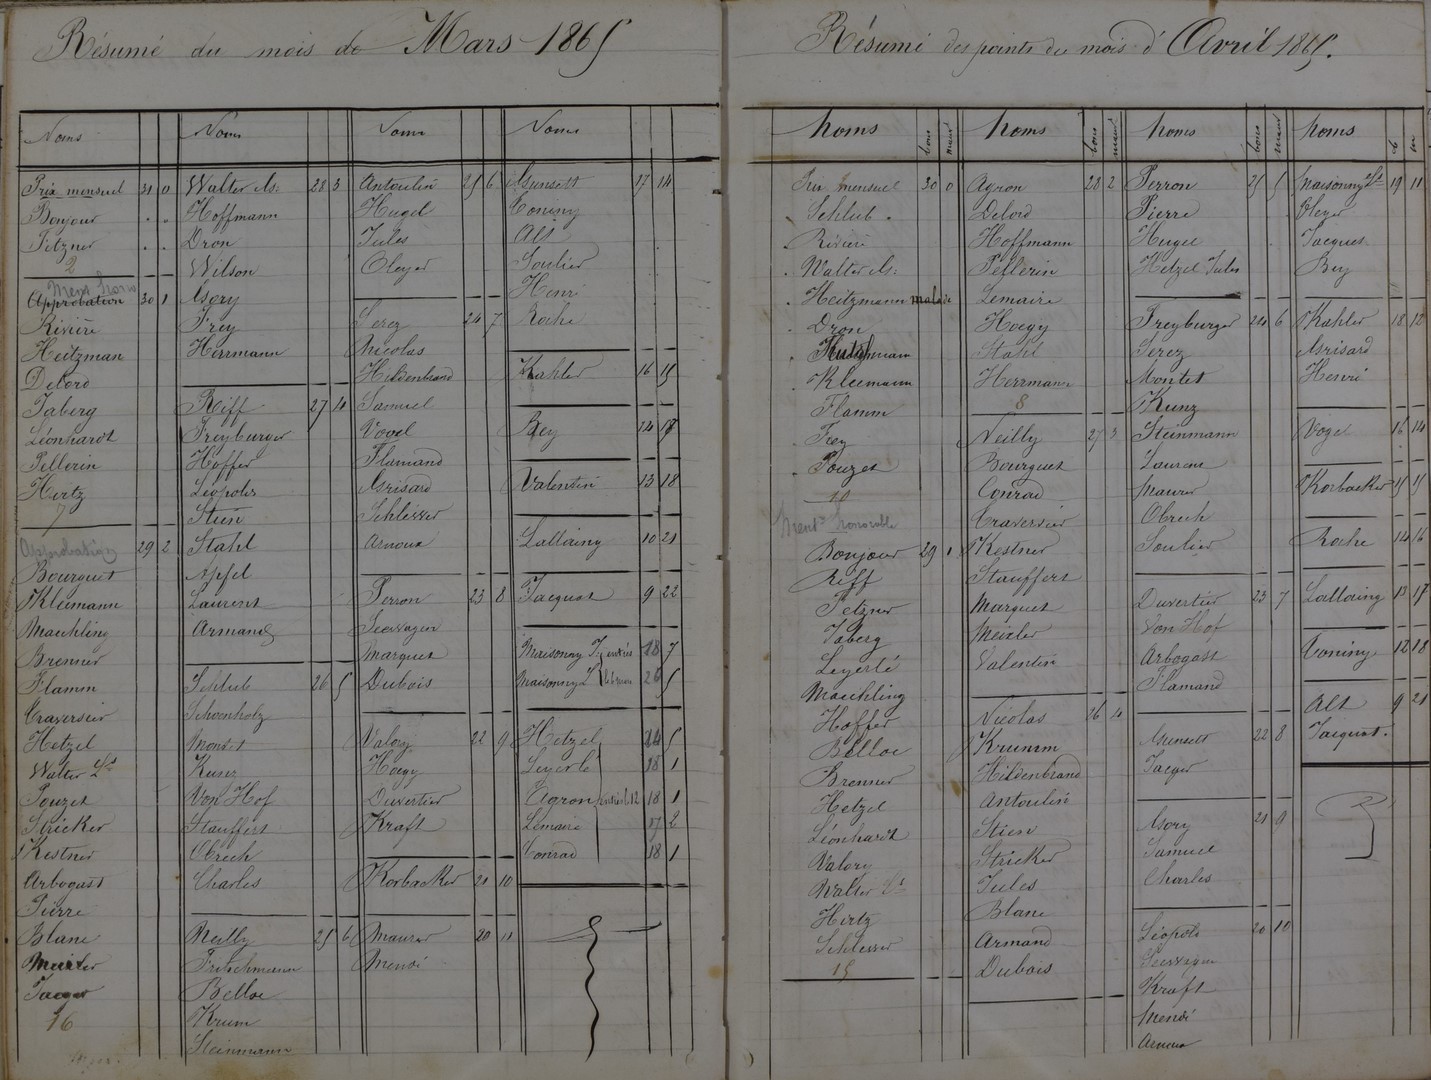 Résumé du mois de Mars 1865
Noms
Prix mensuel 31 0
Bonjour . .
Fetzner . .
2
Ment. Honor
Approbation 30 1
Rivière
Heitzman
Delord
Jaberg
Léonhardt
Pellerin
Hertz
7
Approbation 29 2
Bourguet
Kleemann
Maechling
Brenner
Flamm
Traversier
Hetzel
Walter Ls
Pouzet
Stricker
Kestner
Arbogast
Pierre
Blanc
Meixler
Jaeger
16
Noms
Walter As: 28 3
Hoffmann
Dron
Wilson
Asory
Frey
Herrmann
Riff 27 4
Freyburger
Hoffer
Léopold
Stein
Stahl
Apfel
Laurent
Armand
Schlub 26 5
Schoenholz
Montet
Kunz
Von Hof
Stauffert
Obrech
Charles
Neilly 25 6
Fritschmann
Belloc
Krum
Steinmann
Noms
Antoulin 25 6
Hugel
Jules
Oleyer
Serez 24 7
Nicolas
Hildenbrand
Samuel
Vogel
Flamand
Asrisard
Schlesser
Arnoux
Perron 23 8
Marguet
Dubois
Valory 22 9
Hoegy
Duvertier
Kraft
Korbacker 21 10
Maurer 20 11
Noms
17 14
Coniny
Alt
Soulier
Henri
Roche
Kahler 16 15
Bey 14 17
Valentin 13 18
Lallainy 10 21
Jacquot 9 22
Maisonny 18 7
Maisonny L 26 5
Hetzel 5
Leyerlé 18 1
Agron 18 1
Lemaire 17 2
Conrad 18 1
Résumé des points du mois d'Avril 1865.
Noms bons mauv
Prix mensuel 30 0
Schlub
Rivière
Walter As:
Heitzmann malade
Dron
Kleemann
Flamm
Frey
Pouzet
10
Mentn honorable
Bonjour 29 1
Riff
Fetzner
Jaberg
Leyerlé
Maechling
Hoffer
Belloc
Brenner
Hetzel
Léonhardt
Valory
Walter Ls
Hertz
Schlesser
15
Noms bons mauv
Agron 28 2
Delord
Hoffmann
Pellerin
Lemaire
Hoegy
Stahl
Herrmann
8
Neilly 27 3
Bourguet
Conrad
Traversier
Kestner
Stauffert
Marguet
Meixler
Valentin
Nicolas 26 4
Krumm
Hildenbrand
Antoulin
Stien
Stricker
Jules
Blanc
Armand
Dubois
Noms bons mauv
Perron 25 5
Pierre
Hugel
Hetzel Jules
Freyburger 24 6
Serez
Montet
Kunz
Steinmann
Laurent
Maurer
Obrech
Soulier
Duvertier 23 7
Von Hof
Arbogast
Flamand
22 8
Jaeger
Asory 21 9
Samuel
Charles
Léopold 20 10
Kraft
Arnoux
Noms b m
Maisonny Lt 19 11
Oleyer
Jacques
Bey
Kahler 18 12
Asrisard
Henri
Vogel 16 14
Korbacker 15 15
Roche 14 16
Lallainy 13 17
Coniny 12 18
Alt 9 21
Jacquot.